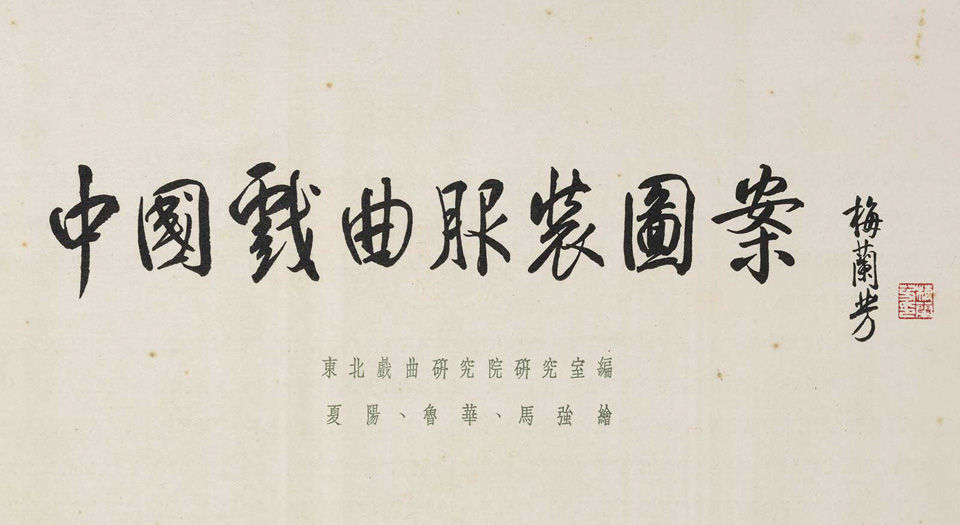 中國戲曲服裝圖案
梅蘭芳
東北戲曲研究院研究室編
夏陽、魯華、馬強繪